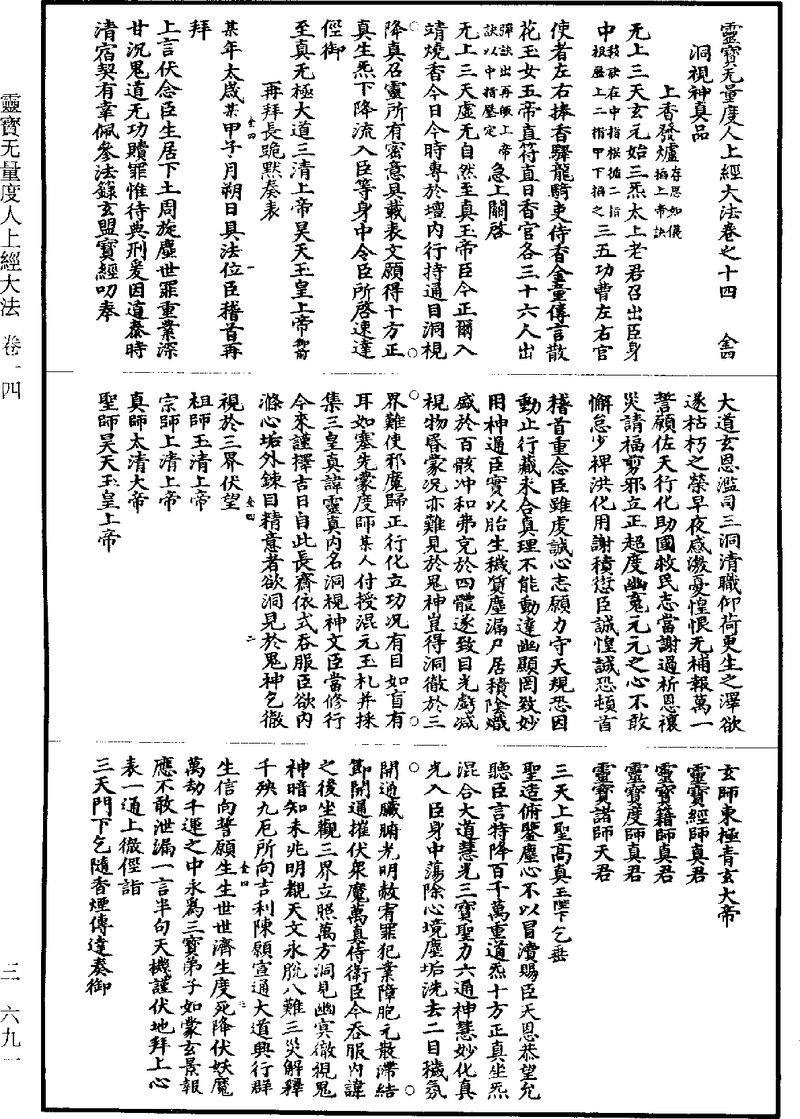 靈寶无量度人上經大法卷之十四　全四
洞視神真品
上香發爐存思如儀掐上帝訣
无上三天玄元始三炁太上老君召出臣身
中 三五功曹左右官
使者左右捧香驛龍騎吏侍香金童傳言散
花玉女五帝直符直日香官各三十六人出
急上關啓
无上三天虛无自然至真玉帝臣今正爾入
靖燒香今日今時專於壇內行持通目洞視
降真召靈所有密意具載表文願得十方正
真生炁下降流入臣等身中令臣所啓速達
徑御
至真无極大道三清上帝昊天玉皇上帝御前
再拜長跪默奏表
某年太歲某甲子月朔日具法位臣稽首再
拜
上言伏念臣生居下土周旋塵世罪重業深
甘沉鬼道无功贖罪惟待典刑爰因道泰時
清宿契有幸佩參法籙玄盟寶經叨奉
大道玄恩濫司三洞清職仰荷更生之澤欲
遂枯朽之榮早夜感激憂惶恨无補報萬一
誓願佐天行化助國救民志當謝過祈恩禳
災請福剪邪立正超度幽冤元元之心不敢
懈怠少裨洪化用謝積愆臣誠惶誠恐頓首
稽首重念臣雖虔誠心志願力守天規恐因
動止行藏未合真理不能動達幽顯罔致妙
用神通臣實以胎生穢質塵漏尸居積陰熾
盛於百骸冲和弗克於四體遂致目光虧減
視物昏蒙况亦難見於鬼神豈得洞徹於三
界難使邪魔歸正行化立功况有目如盲有
耳如塞先蒙度師某人付授混元玉札并採
集三皇真諱靈真內名洞視神文臣當修行
今來謹擇吉日自此長齋依式吞服臣欲內
滌心垢外鍊目精意者欲洞見於鬼神乞徹
視於三界伏望
祖師玉清上帝
宗師上清上帝
真師太清大帝
聖師昊天玉皇上帝
玄師東極青玄大帝
靈寶經師真君
靈寶籍師真君
靈寶度師真君
靈寶諸師天君
三天上聖高真玉陛下乞垂
聖造俯鑒塵心不以冒瀆賜臣天恩恭望允
聽臣言特降百千萬重道炁十方正真生炁
混合大道慧光三寶聖力六通神慧妙化真
光入臣身中蕩除心境塵垢洗去二目穢氛
開通臟腑光明赦宥罪犯業障胞元散滯結
節開通摧伏衆魔萬真侍衛臣今吞服內諱
之後坐觀三界立照萬方洞見幽冥徹視鬼
神暗知未兆明觀天文永脫八難三災解釋
千殃九厄所向吉利陳願宣通大道興行群
生信向誓願生生世世濟生度死降伏妖魔
萬劫千運之中永爲三寶弟子如蒙玄景報
應不敢泄漏一言半句天機謹伏地拜上心
表一通上徹徑詣
三天門下乞隨香煙傳達奏御
靈寶无量度人上經大法　卷一四
三　六九一